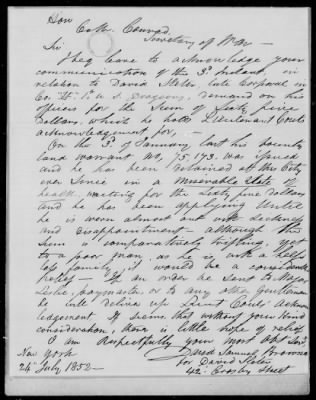 Hon
C. M. Conrad
Secretary of War —
Sir
I beg leave to acknowledge your
communication of the 3d Instant, in
relation to David Slater, late Corporal in
Co. "H" 1st U. S. Dragoons, demand on his
officer for the Sum of Sixty five
Dollars, which he holds Lieutenant
acknowledgement for, —
On the 3d of January last his bounty
land warrant No, 75.173. was issued
and he has been retained at this City
ever Since in a Miserable state of
health, waiting for the Sixty five dollars
and he has been applying Until
he is worn almost out with sickness
and disappointment — although the
Sum is comparatively trifling, yet
to a poor man, as he is with a help-
less family, it would be a considerable
relief — If an order be sent to Major
Leslie, paymaster, or to any other Gentleman
he will deliver up Lieut acknow-
ledgement. It seems this without your kind
consideration, there is little hope of relief
I am Respectfully your most Obt Servt
New York Samuel Browne
24th July 1852 — for David Slater
42 Crosby Street